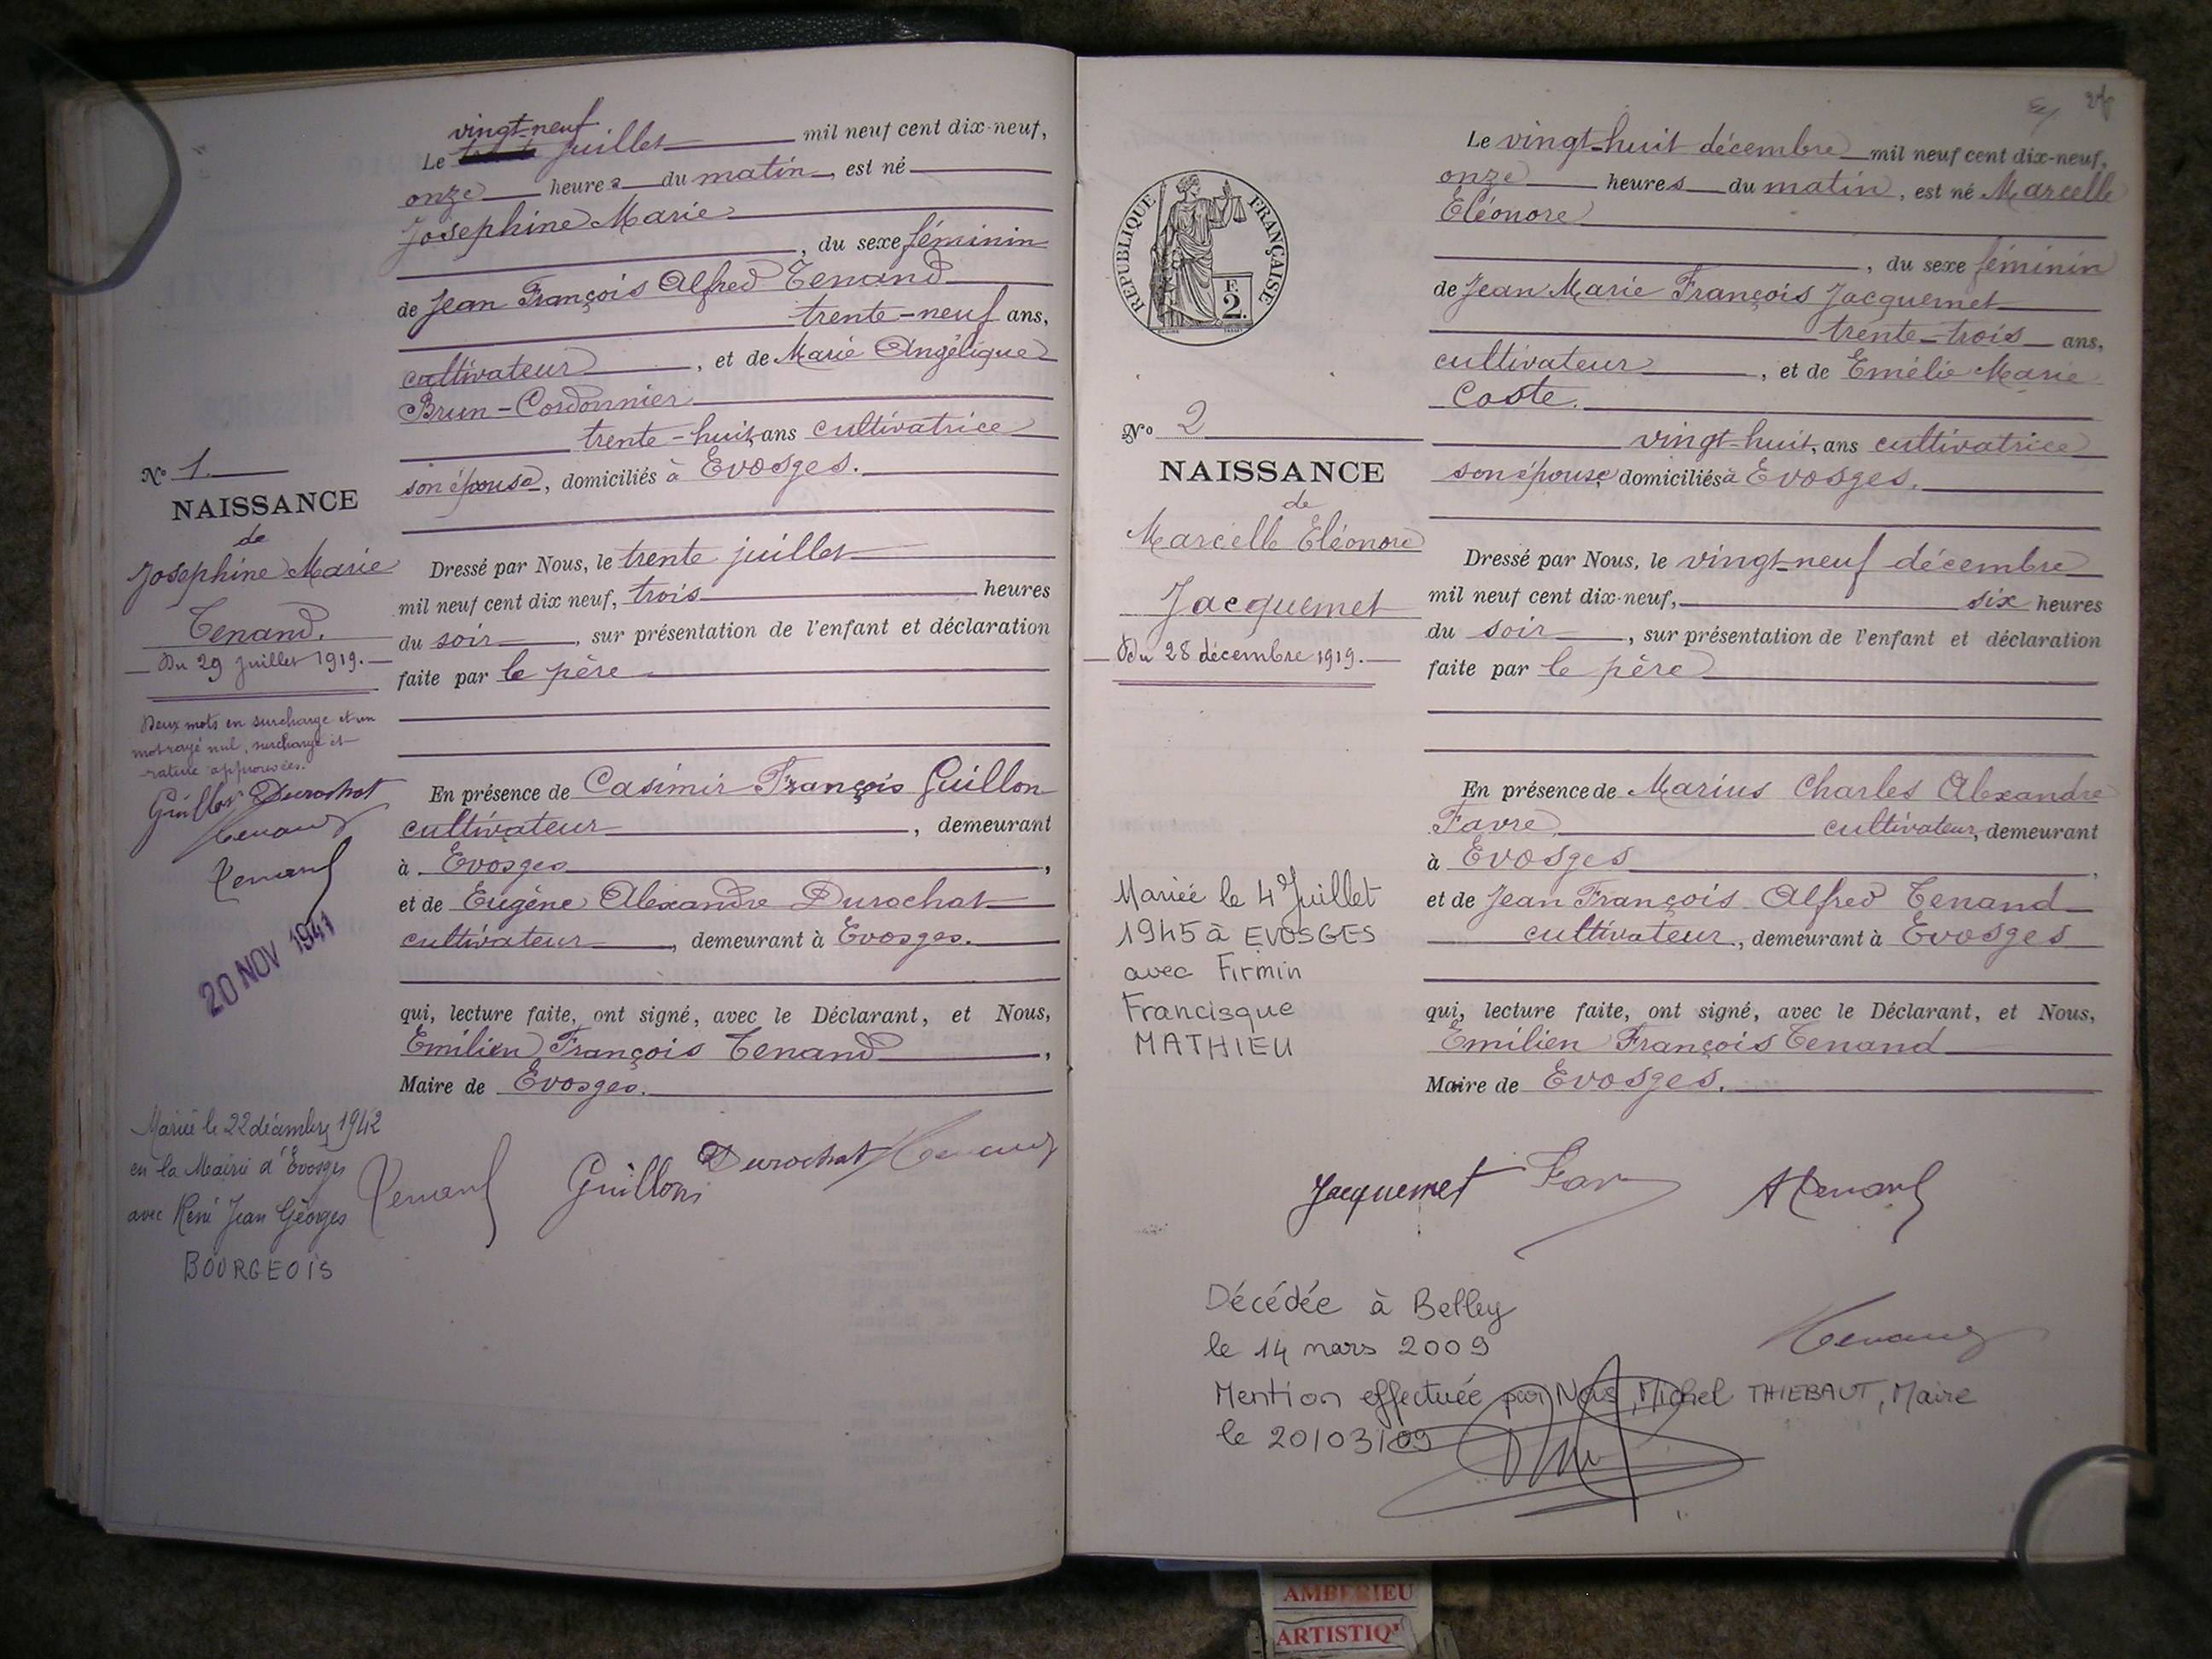 vingt-neuf
Le juillet mil neuf cent dix-neuf,
onze heures du matin, est né
Josephine Marie
, du sexe féminin
de Jean François Alfred Tenand
trente-neuf ans,
cultivateur, et de Marie Angélique
Brun-Cordonnier
trente-huit ans cultivatrice
son épouse, domiciliés à Evosges.
No 1.
NAISSANCE
de
Josephine Marie
Tenand.
Du 29 juillet 1919.
Deux mots en surcharge et un
mot rayé nul, surcharge et
rature approuvées.
Guillon Durochat
Tenand
Tenand
20 NOV 1941
Dressé par Nous, le trente juillet
mil neuf cent dix neuf, trois heures
du soir, sur présentation de l'enfant et déclaration
faite par le père
En présence de Casimir François Guillon
cultivateur, demeurant
à Evosges,
et de Eugène Alexandre Durochat
cultivateur, demeurant à Evosges.
qui, lecture faite, ont signé, avec le Déclarant, et Nous,
Emilien François Tenand,
Maire de Evosges.
Mariée le 22 décembre 1942
en la Mairie d'Evosges
avec René Jean Georges
BOURGEOIS
Tenand Guillon Durochat Tenand
Le vingt-huit décembre mil neuf cent dix-neuf,
onze heures du matin, est né Marcelle
Eléonore
, du sexe féminin
de Jean Marie François Jacquemet
trente-trois ans,
cultivateur, et de Emélie Marie
Coste.
vingt-huit, ans cultivatrice
son épouse, domiciliés à Evosges.
REPUBLIQUE FRANÇAISE
F.
2.
No 2
NAISSANCE
de
Marcelle Eléonore
Jacquemet
Du 28 décembre 1919.
Dressé par Nous, le vingt-neuf décembre
mil neuf cent dix-neuf, six heures
du soir, sur présentation de l'enfant et déclaration
faite par le père
En présence de Marius Charles Alexandre
Favre cultivateur, demeurant
à Evosges,
et de Jean François Alfred Tenand
cultivateur, demeurant à Evosges
qui, lecture faite, ont signé, avec le Déclarant, et Nous,
Emilien François Tenand
Maire de Evosges.
Mariée le 4 Juillet
1945 à EVOSGES
avec Firmin
Francisque
MATHIEU
Jacquemet Favre A Tenand
Tenand
Décédée à Belley
le 14 mars 2009
Mention effectuée par Nous, Michel THIEBAUT, Maire
le 20/03/09
AMBERIEU
ARTISTIQ